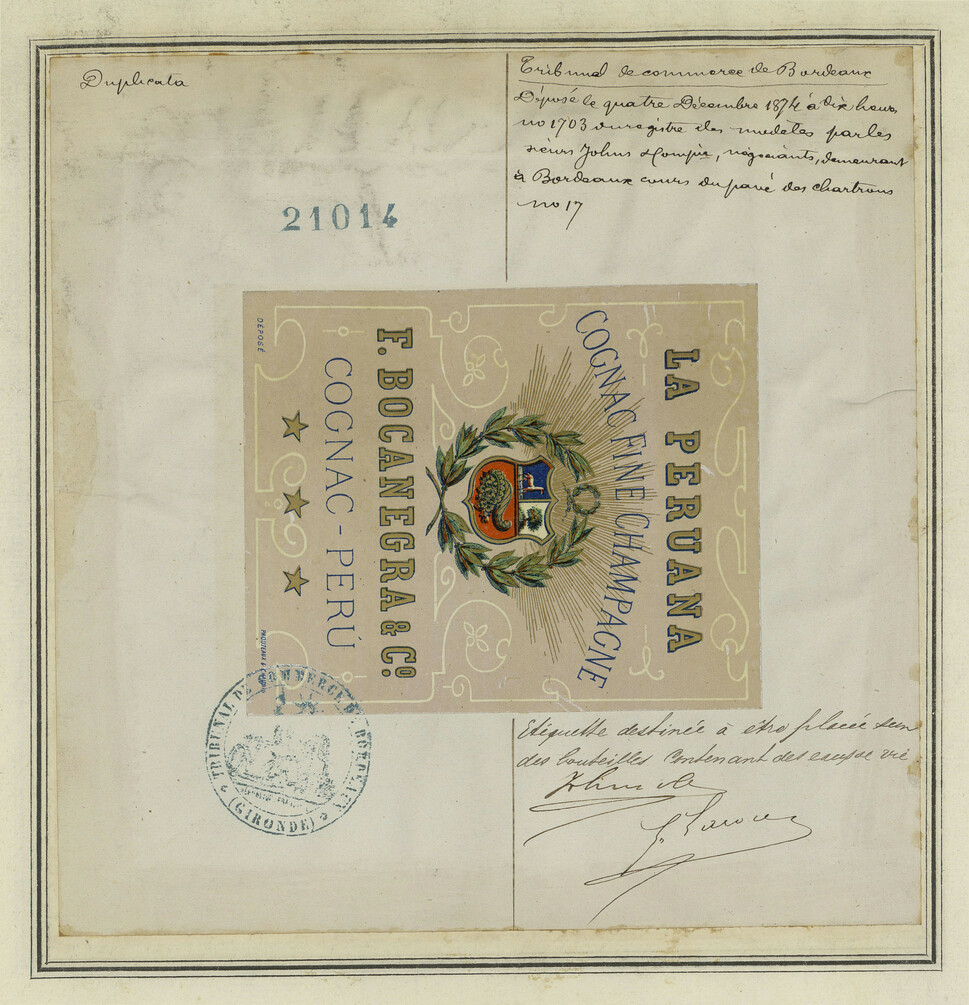 Duplicata
Tribunal de commerce de Bordeaux
Déposé le quatre Décembre 1874 à dix heures
no 1703 du registre des modèles par les
sieurs Johns & Compie, négociants, demeurant
à Bordeaux cours du pavé des chartrons
no 17
21014
LA PERUANA
COGNAC FINE CHAMPAGNE
F. BOCANEGRA & Co.
COGNAC-PERÚ
DÉPOSÉ
TRIBUNAL DE COMMERCE DE BORDEAUX
(GIRONDE)
Etiquette destinée à être placée sur
des bouteilles contenant des eaux de vie